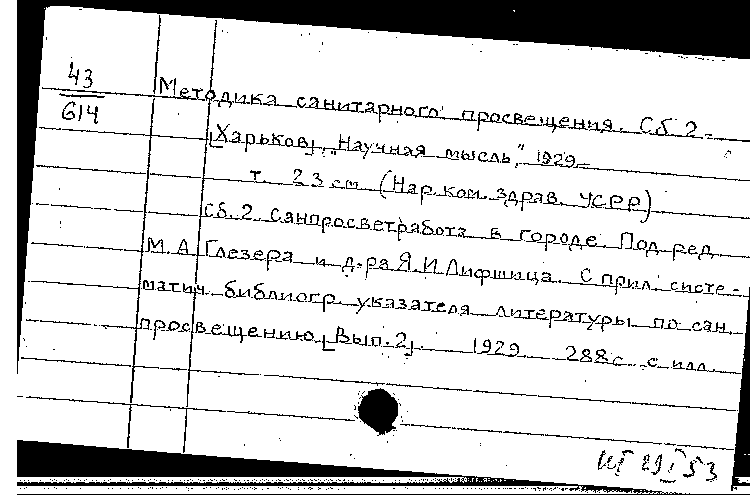 43
614
Методика санитарного просвещения. Сб. 2-
[Харьков], "Научная мысль," 1929-
т. 23 см. (Нар. ком. здрав. УСРР)
Сб. 2. Санпросветработа в городе. Под ред.
М. А. Глезера и д-ра Я. И. Лифшица. С прил. систе-
матич. библиогр. указателя литературы по сан.
просвещению. [Вып. 2]. 1929 288 с. с илл.
29 I 53